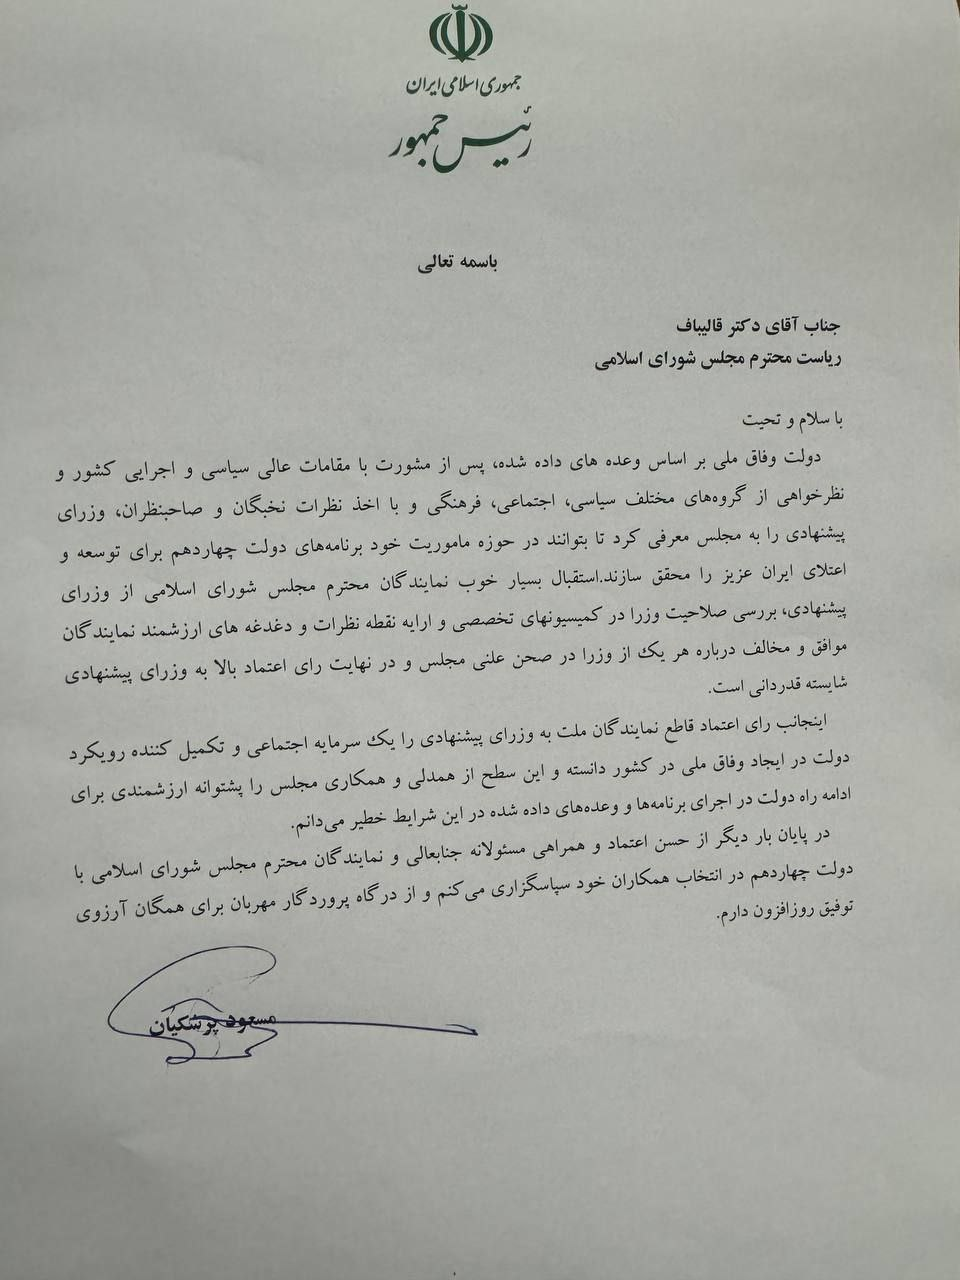 جمهوری اسلامی ایران
رئیس جمهور
باسمه تعالی
جناب آقای دکتر قالیباف
ریاست محترم مجلس شورای اسلامی
با سلام و تحیت
دولت وفاق ملی بر اساس وعده های داده شده، پس از مشورت با مقامات عالی سیاسی و اجرایی کشور و
نظرخواهی از گروه‌های مختلف سیاسی، اجتماعی، فرهنگی و با اخذ نظرات نخبگان و صاحبنظران، وزرای
پیشنهادی را به مجلس معرفی کرد تا بتوانند در حوزه ماموریت خود برنامه‌های دولت چهاردهم برای توسعه و
اعتلای ایران عزیز را محقق سازند.استقبال بسیار خوب نمایندگان محترم مجلس شورای اسلامی از وزرای
پیشنهادی، بررسی صلاحیت وزرا در کمیسیونهای تخصصی و ارایه نقطه نظرات و دغدغه های ارزشمند نمایندگان
موافق و مخالف درباره هر یک از وزرا در صحن علنی مجلس و در نهایت رای اعتماد بالا به وزرای پیشنهادی
شایسته قدردانی است.
اینجانب رای اعتماد قاطع نمایندگان ملت به وزرای پیشنهادی را یک سرمایه اجتماعی و تکمیل کننده رویکرد
دولت در ایجاد وفاق ملی در کشور دانسته و این سطح از همدلی و همکاری مجلس را پشتوانه ارزشمندی برای
ادامه راه دولت در اجرای برنامه‌ها و وعده‌های داده شده در این شرایط خطیر می‌دانم.
در پایان بار دیگر از حسن اعتماد و همراهی مسئولانه جنابعالی و نمایندگان محترم مجلس شورای اسلامی با
دولت چهاردهم در انتخاب همکاران خود سپاسگزاری می‌کنم و از درگاه پروردگار مهربان برای همگان آرزوی
توفیق روزافزون دارم.
مسعود پزشکیان